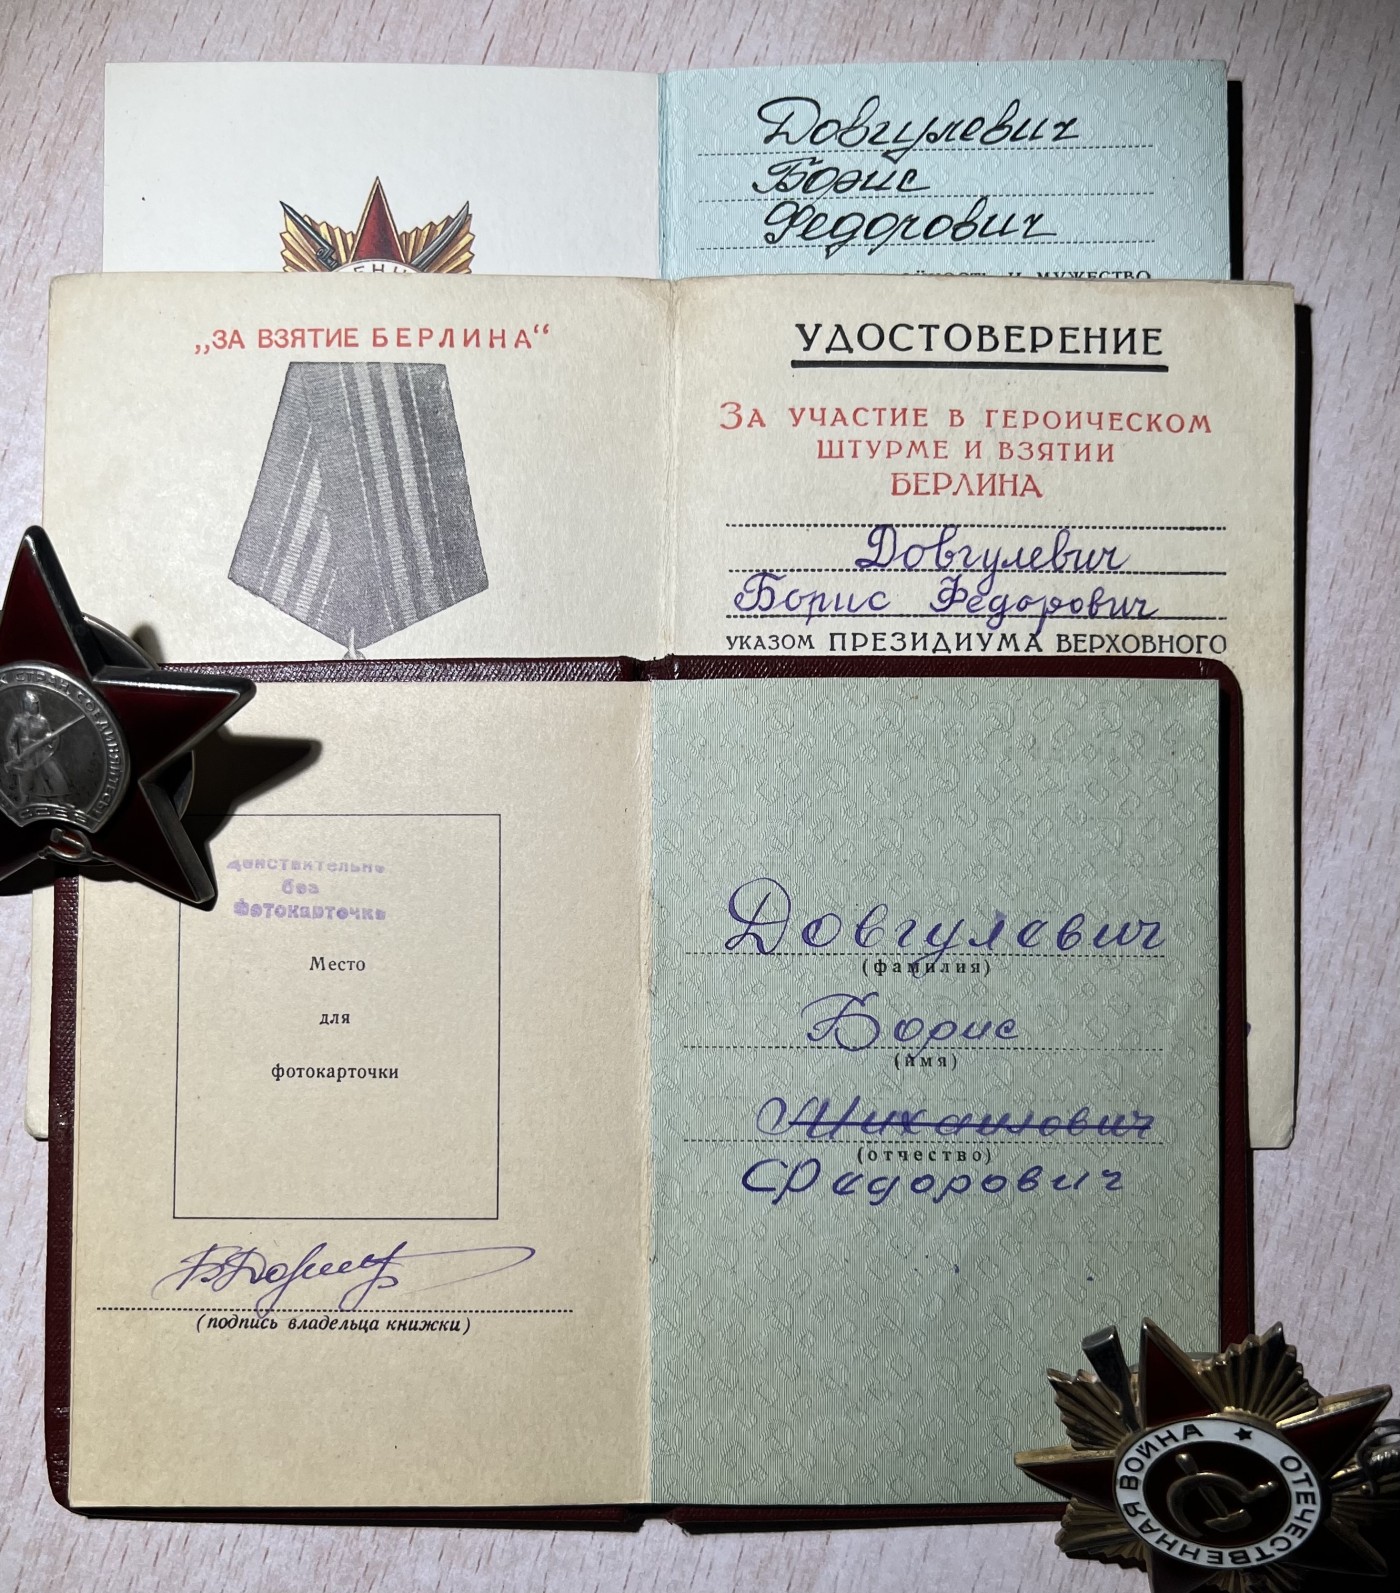 Довгулевич
Борис
Федорович
И МУЖЕСТВО
„ЗА ВЗЯТИЕ БЕРЛИНА“
УДОСТОВЕРЕНИЕ
ЗА УЧАСТИЕ В ГЕРОИЧЕСКОМ
ШТУРМЕ И ВЗЯТИИ
БЕРЛИНА
Довгулевич
Борис Федорович
УКАЗОМ ПРЕЗИДИУМА ВЕРХОВНОГО
СССР
действительно
без
фотокарточки
Место
для
фотокарточки
(подпись владельца книжки)
Довгулевич
(фамилия)
Борис
(имя)
Михаилович
(отчество)
Федорович
ОТЕЧЕСТВЕННАЯ ВОЙНА